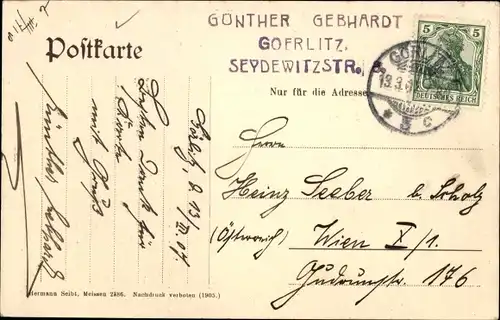 GÜNTHER GEBHARDT
GOERLITZ.
SEYDEWITZSTR.
5 5
DEUTSCHES REICH
GÖRLITZ
* 3 c
Postkarte
Nur für die Adresse
Herrn
Heinz Seeber b. Scholz
(Österreich) Wien X/1.
Gudrunstr. 176
Görlitz, d. 13/III.07.
Besten Dank für
Karte
mit Gruß
Günther Gebhardt
Hermann Seibt, Meissen 2486. Nachdruck verboten (1905.)